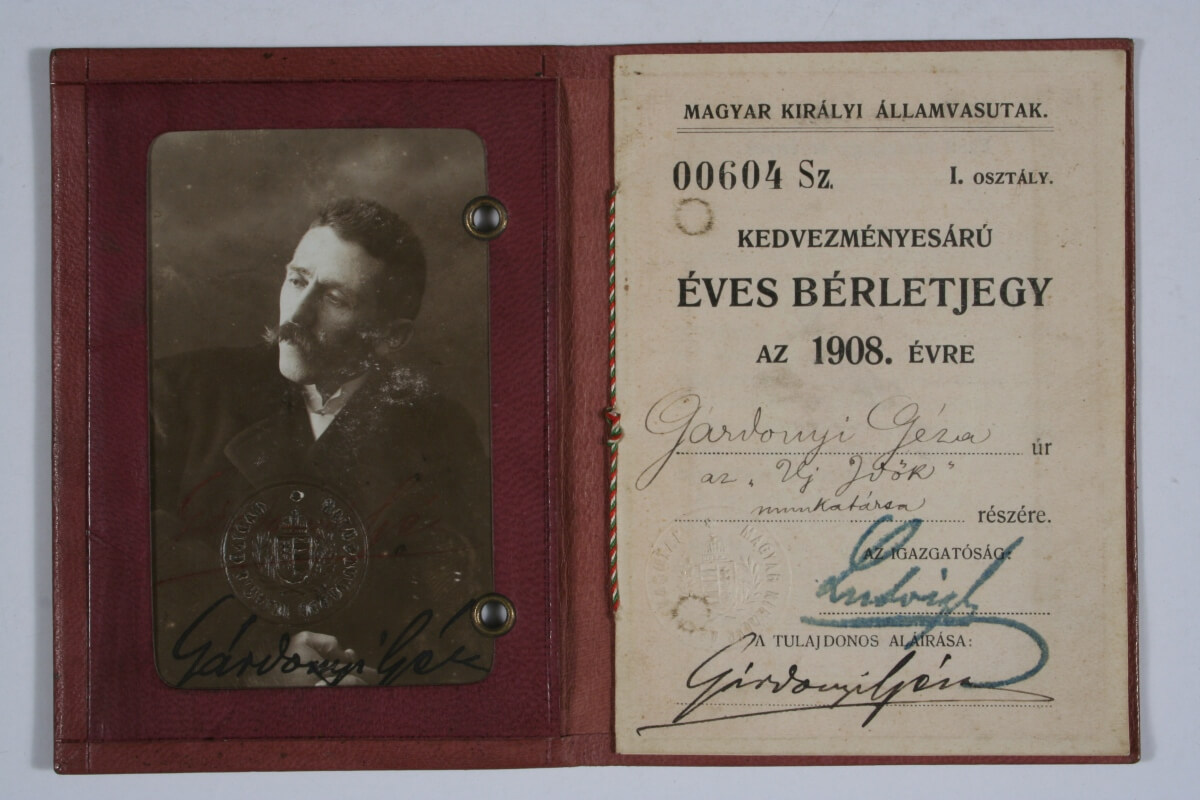 Gárdonyi Géza
MAGYAR KIRÁLYI ÁLLAMVASUTAK.
00604 Sz. I. OSZTÁLY.
KEDVEZMÉNYESÁRÚ
ÉVES BÉRLETJEGY
AZ 1908. ÉVRE
Gárdonyi Géza úr
az „Uj Idők"
munkatársa részére.
AZ IGAZGATÓSÁG:
Ludvigh
A TULAJDONOS ALÁÍRÁSA:
Gárdonyi Géza